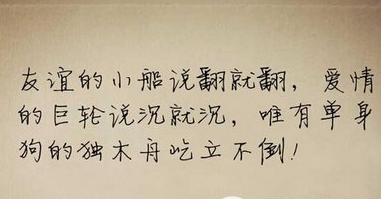 友谊的小船说翻就翻，爱情
的巨轮说沉就沉，唯有单身
狗的独木舟屹立不倒！